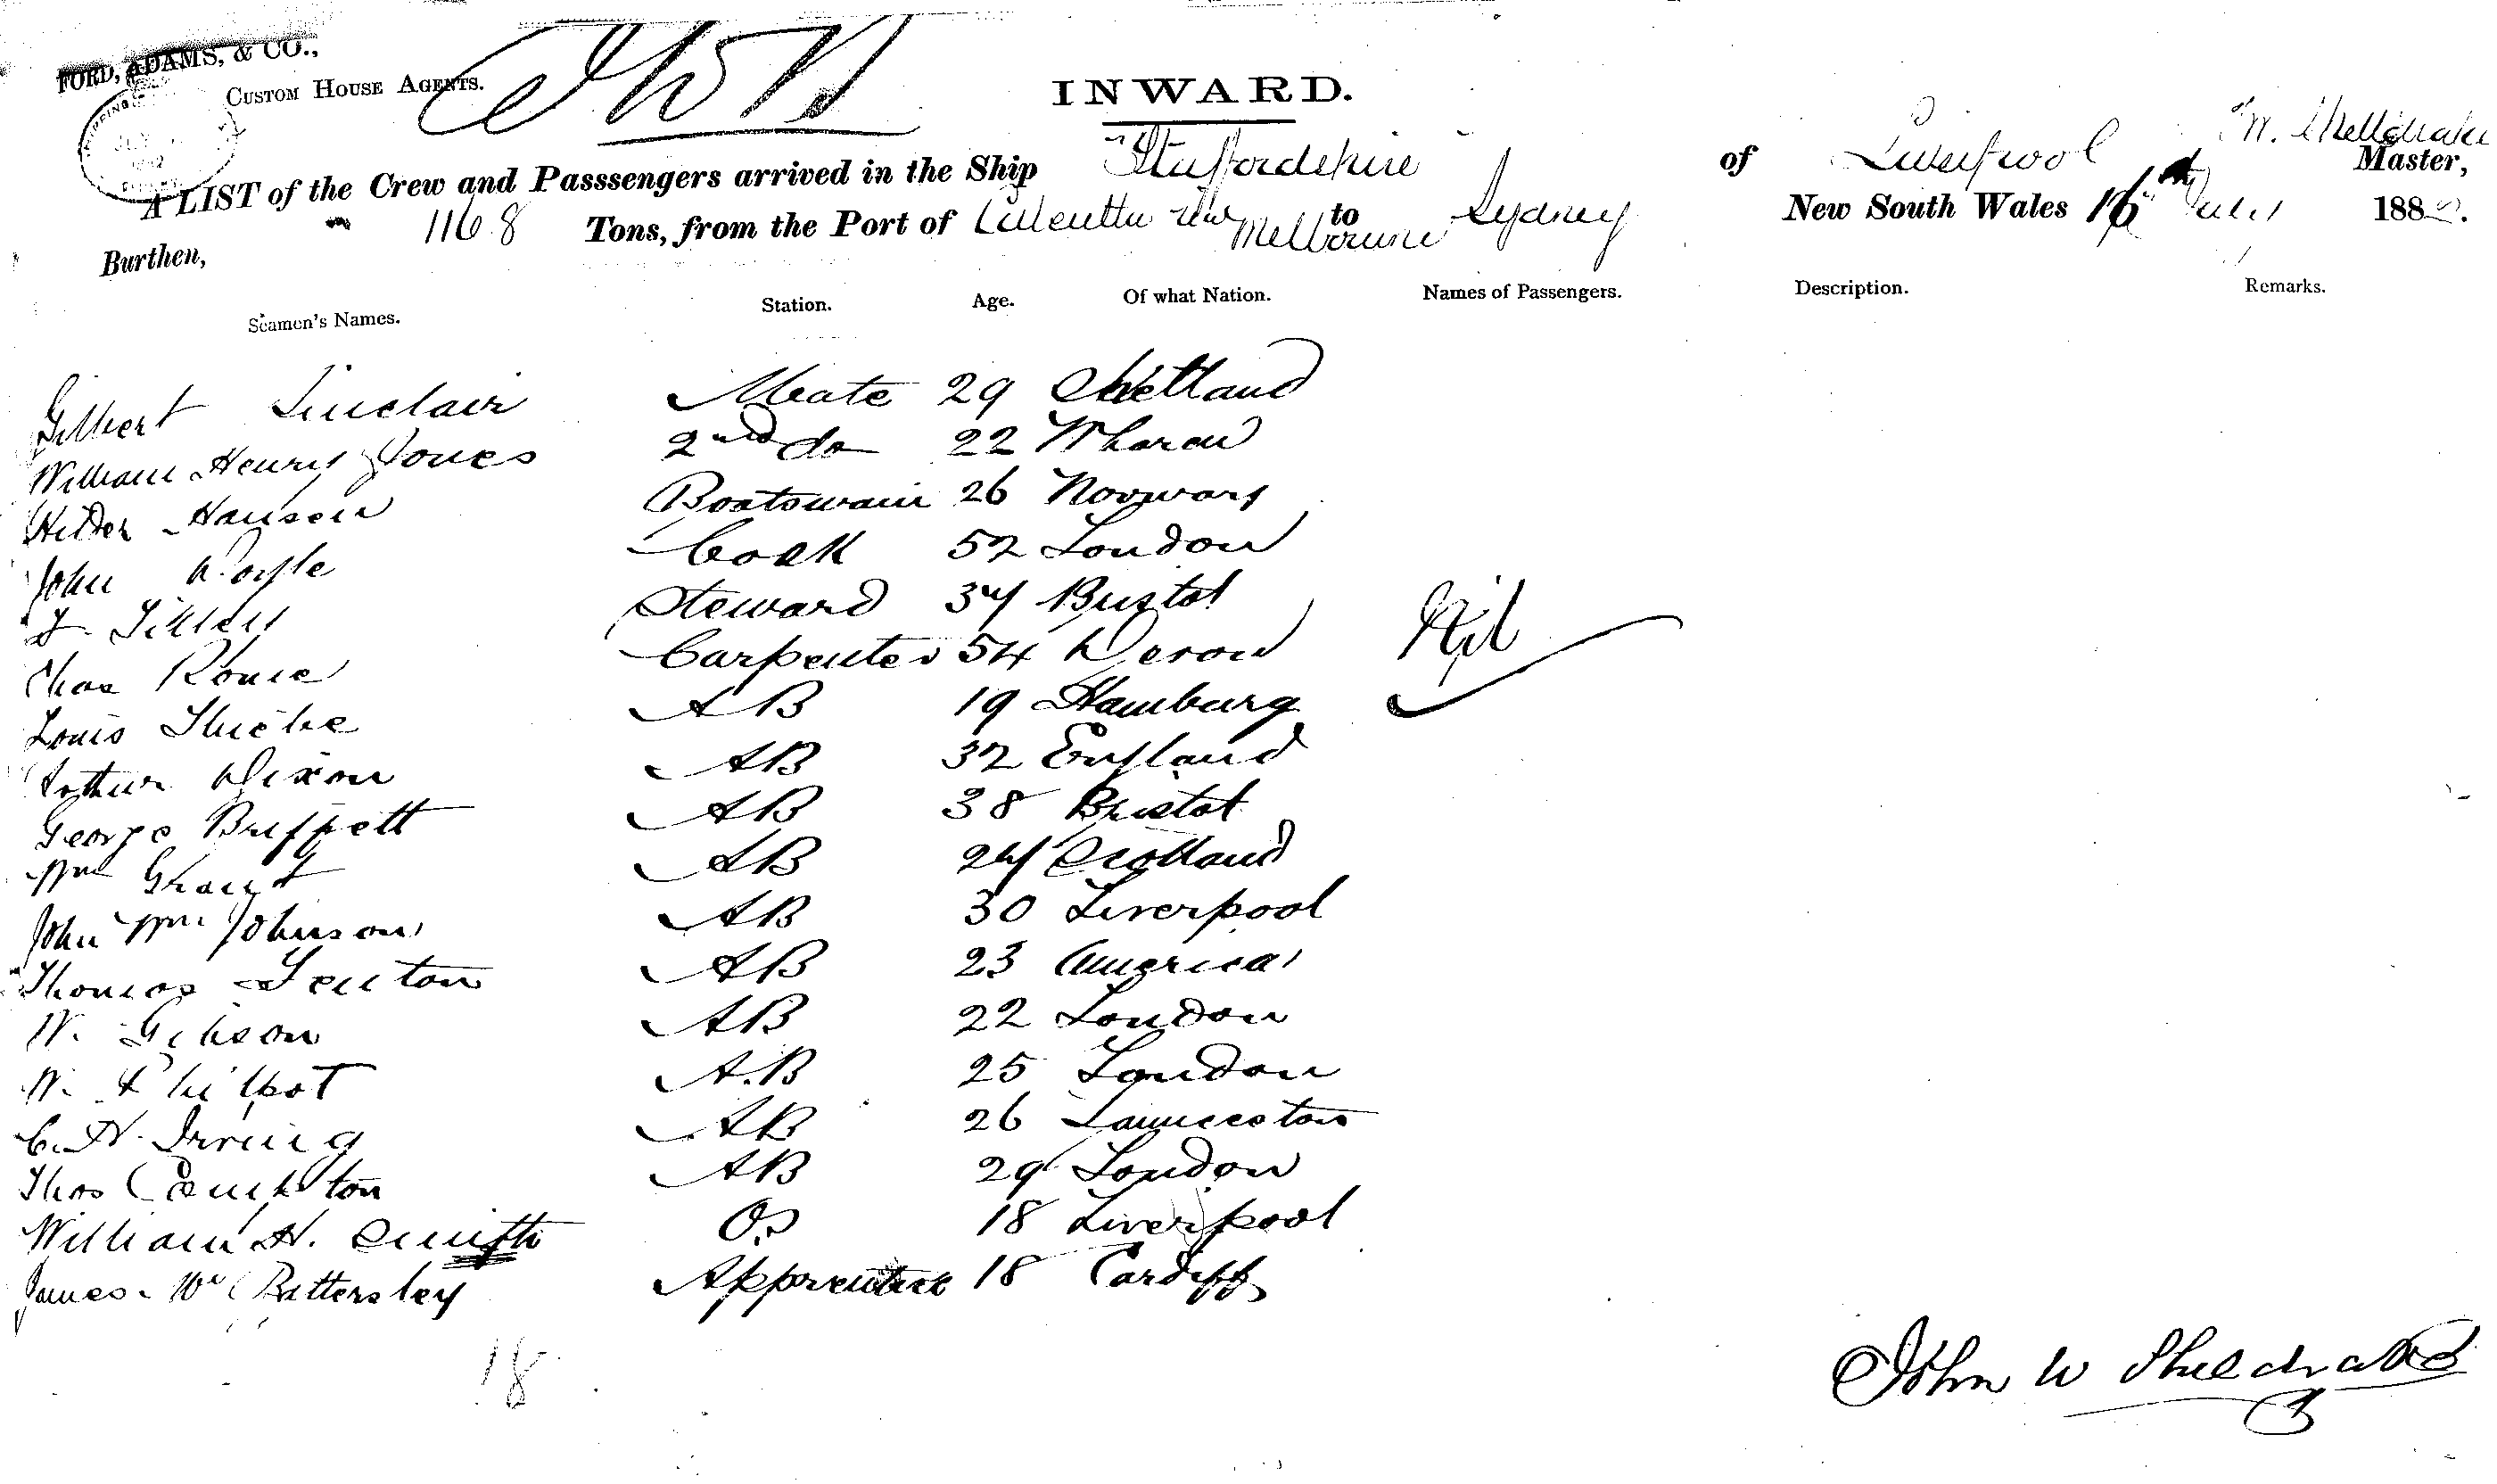 FORD, ADAMS, & CO.,
CUSTOM HOUSE AGENTS.
INWARD.
A LIST of the Crew and Passsengers arrived in the Ship "Staffordshire" of Liverpool Master,
Burthen, 1168 Tons, from the Port of Calcutta via Melbourne to Sydney New South Wales 16th July 1882.
Seamen's Names. Station. Age. Of what Nation. Names of Passengers. Description. Remarks.
Gilbert Sinclair Mate 29 Shetland
William Henry Jones 2nd do 22
Hansen Boatswain 26 Noowary
John Doyle Cook 52 London
Steward 34 Bristol
Nil
Chas Carpenter 54 Devon
Louis Thiebe AB 19 Hamburg
Arthur Dixon AB 32 England
George AB 38 Bristol
Wm Grant AB 24 Scotland
John Wm Johnson AB 30 Liverpool
Thomas Fenton AB 23 America
W. Gibson AB 22 London
W. Philpot A.B 25 London
C. H. Irving AB 26 Launceston
Thos AB 29 London
William H. Smith O.S 18 Liverpool
James Wm Battersley Apprentice 18 Cardiff
18
John W Sheldrake